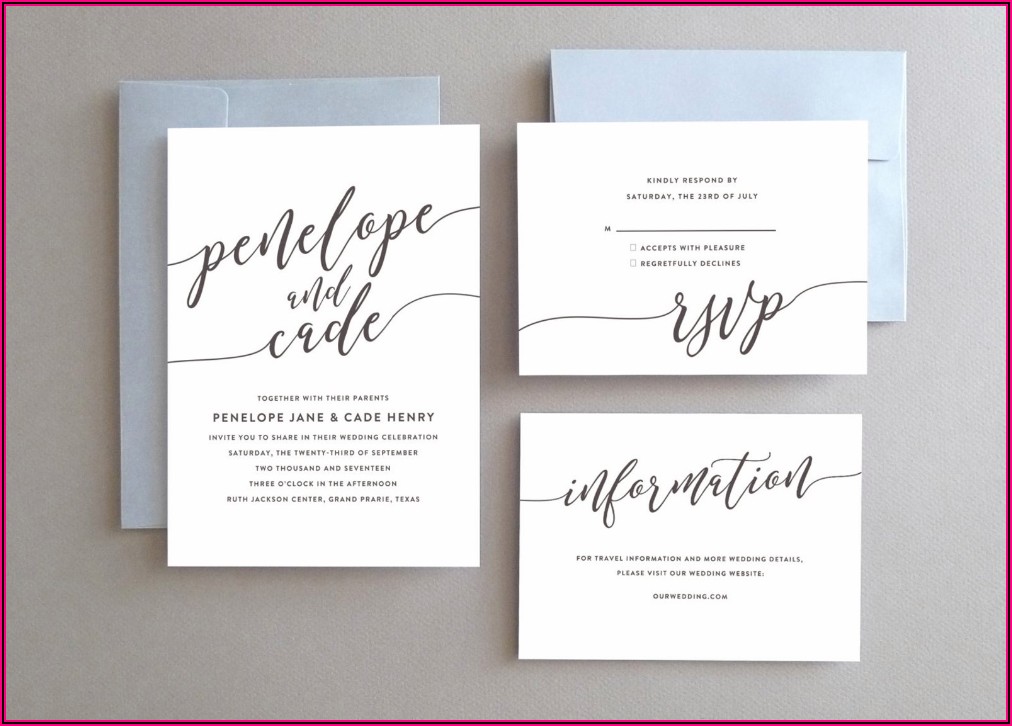 penelope
and
cade
TOGETHER WITH THEIR PARENTS
PENELOPE JANE & CADE HENRY
INVITE YOU TO SHARE IN THEIR WEDDING CELEBRATION
SATURDAY, THE TWENTY-THIRD OF SEPTEMBER
TWO THOUSAND AND SEVENTEEN
THREE O'CLOCK IN THE AFTERNOON
RUTH JACKSON CENTER, GRAND PRARIE, TEXAS
KINDLY RESPOND BY
SATURDAY, THE 23RD OF JULY
M
ACCEPTS WITH PLEASURE
REGRETFULLY DECLINES
rsvp
information
FOR TRAVEL INFORMATION AND MORE WEDDING DETAILS,
PLEASE VISIT OUR WEDDING WEBSITE:
OURWEDDING.COM